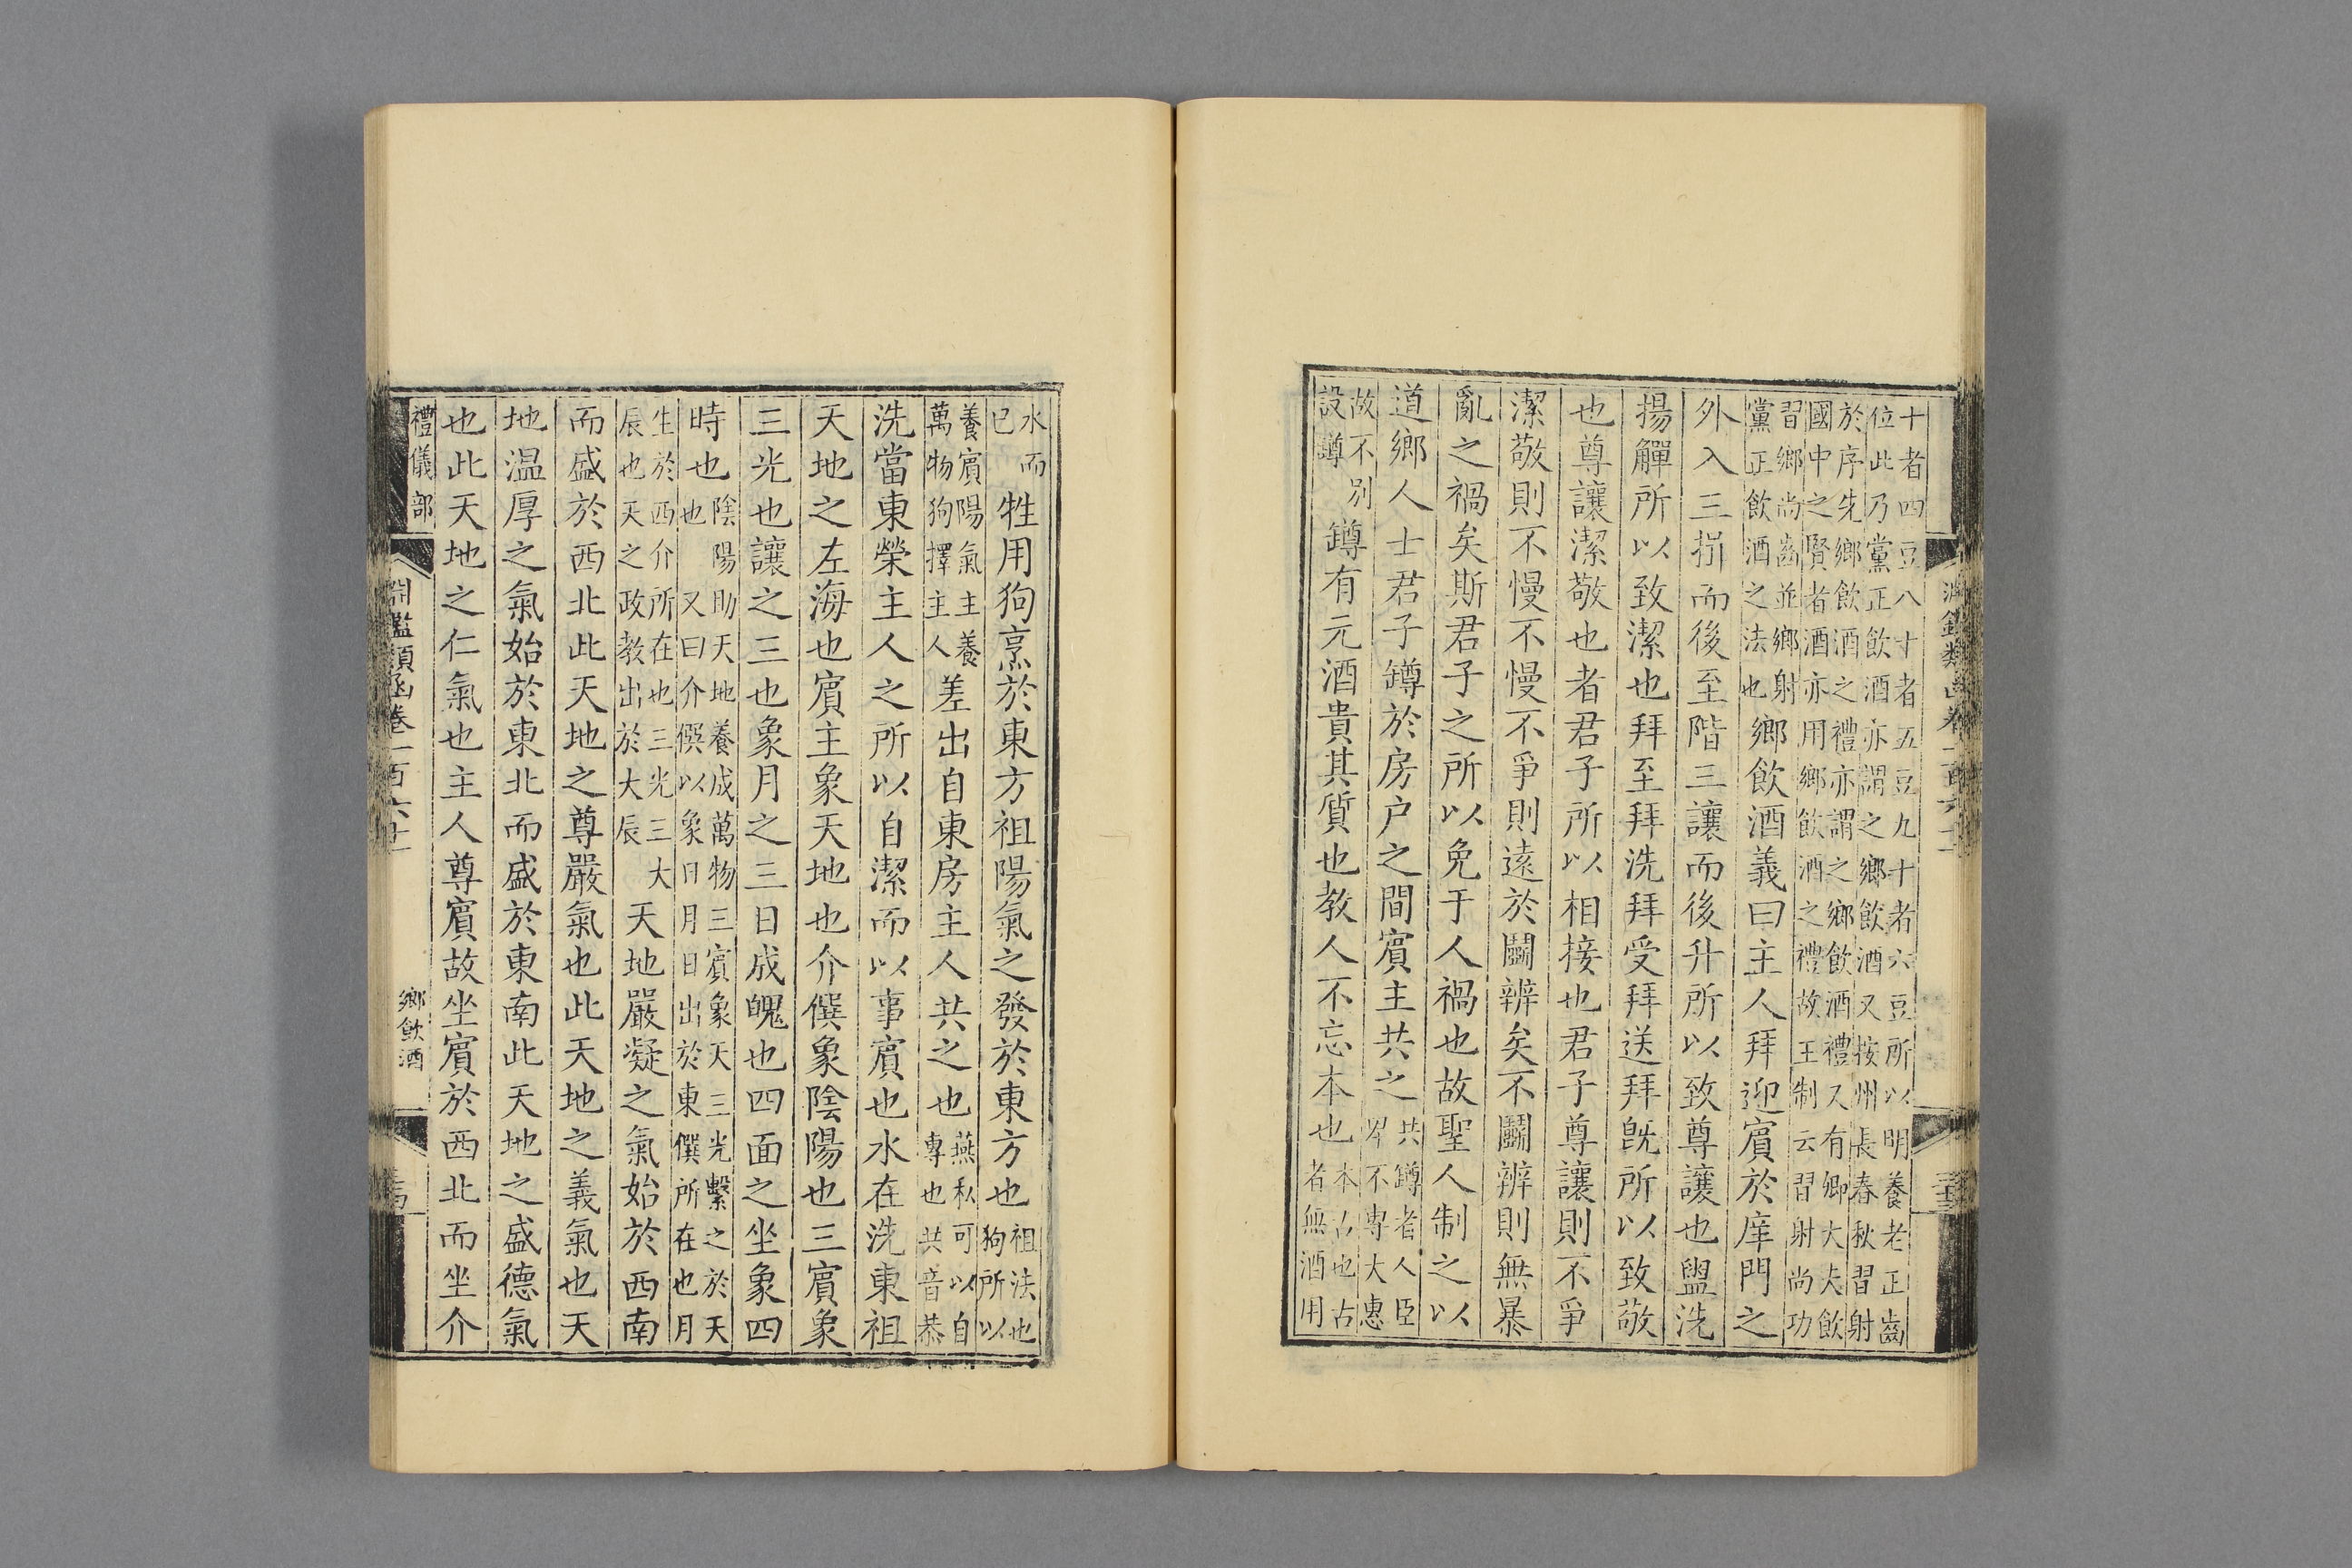 十者四豆八十者五豆九十者六豆所以明養老正齒
位此乃黨正飲酒亦謂之鄉飲酒又按州長春秋習射
於序先鄉飲酒之禮亦謂之鄉飲酒禮又有鄉大夫飲
國中之賢者酒亦用鄉飲酒之禮故王制云習射尚功
習鄉尚齒並鄉射
黨正飲酒之法也
鄉飲酒義曰主人拜迎賓於庠門之
外入三揖而後至階三讓而後升所以致尊讓也盥洗
揚觶所以致潔也拜至拜洗拜受拜送拜旣所以致敬
也尊讓潔敬也者君子所以相接也君子尊讓則不爭
潔敬則不慢不慢不爭則遠於鬭辨矣不鬭辨則無暴
亂之禍矣斯君子之所以免于人禍也故聖人制之以
道鄉人士君子罇於房户之間賓主共之
共罇者人臣
卑不專大惠
故不別
設罇
罇有元酒貴其質也教人不忘本也
本古也古
者無酒用
水而
已
牲用狗烹於東方祖陽氣之發於東方也
祖法也
狗所以
養賓陽氣主養
萬物狗擇主人
羞出自東房主人共之也
燕私可以自
專也共音恭
洗當東榮主人之所以自潔而以事賓也水在洗東祖
天地之左海也賓主象天地也介僎象陰陽也三賓象
三光也讓之三也象月之三日成魄也四面之坐象四
時也
陰陽助天地養成萬物三賓象天三光繫之於天
也又曰介僎以象日月日出於東僎所在也月
生於西介所在也三光三大
辰也天之政教出於大辰
天地嚴凝之氣始於西南
而盛於西北此天地之尊嚴氣也此天地之義氣也天
地温厚之氣始於東北而盛於東南此天地之盛德氣
也此天地之仁氣也主人尊賓故坐賓於西北而坐介
禮儀部
淵鑑類函卷一百六十一
鄉飲酒